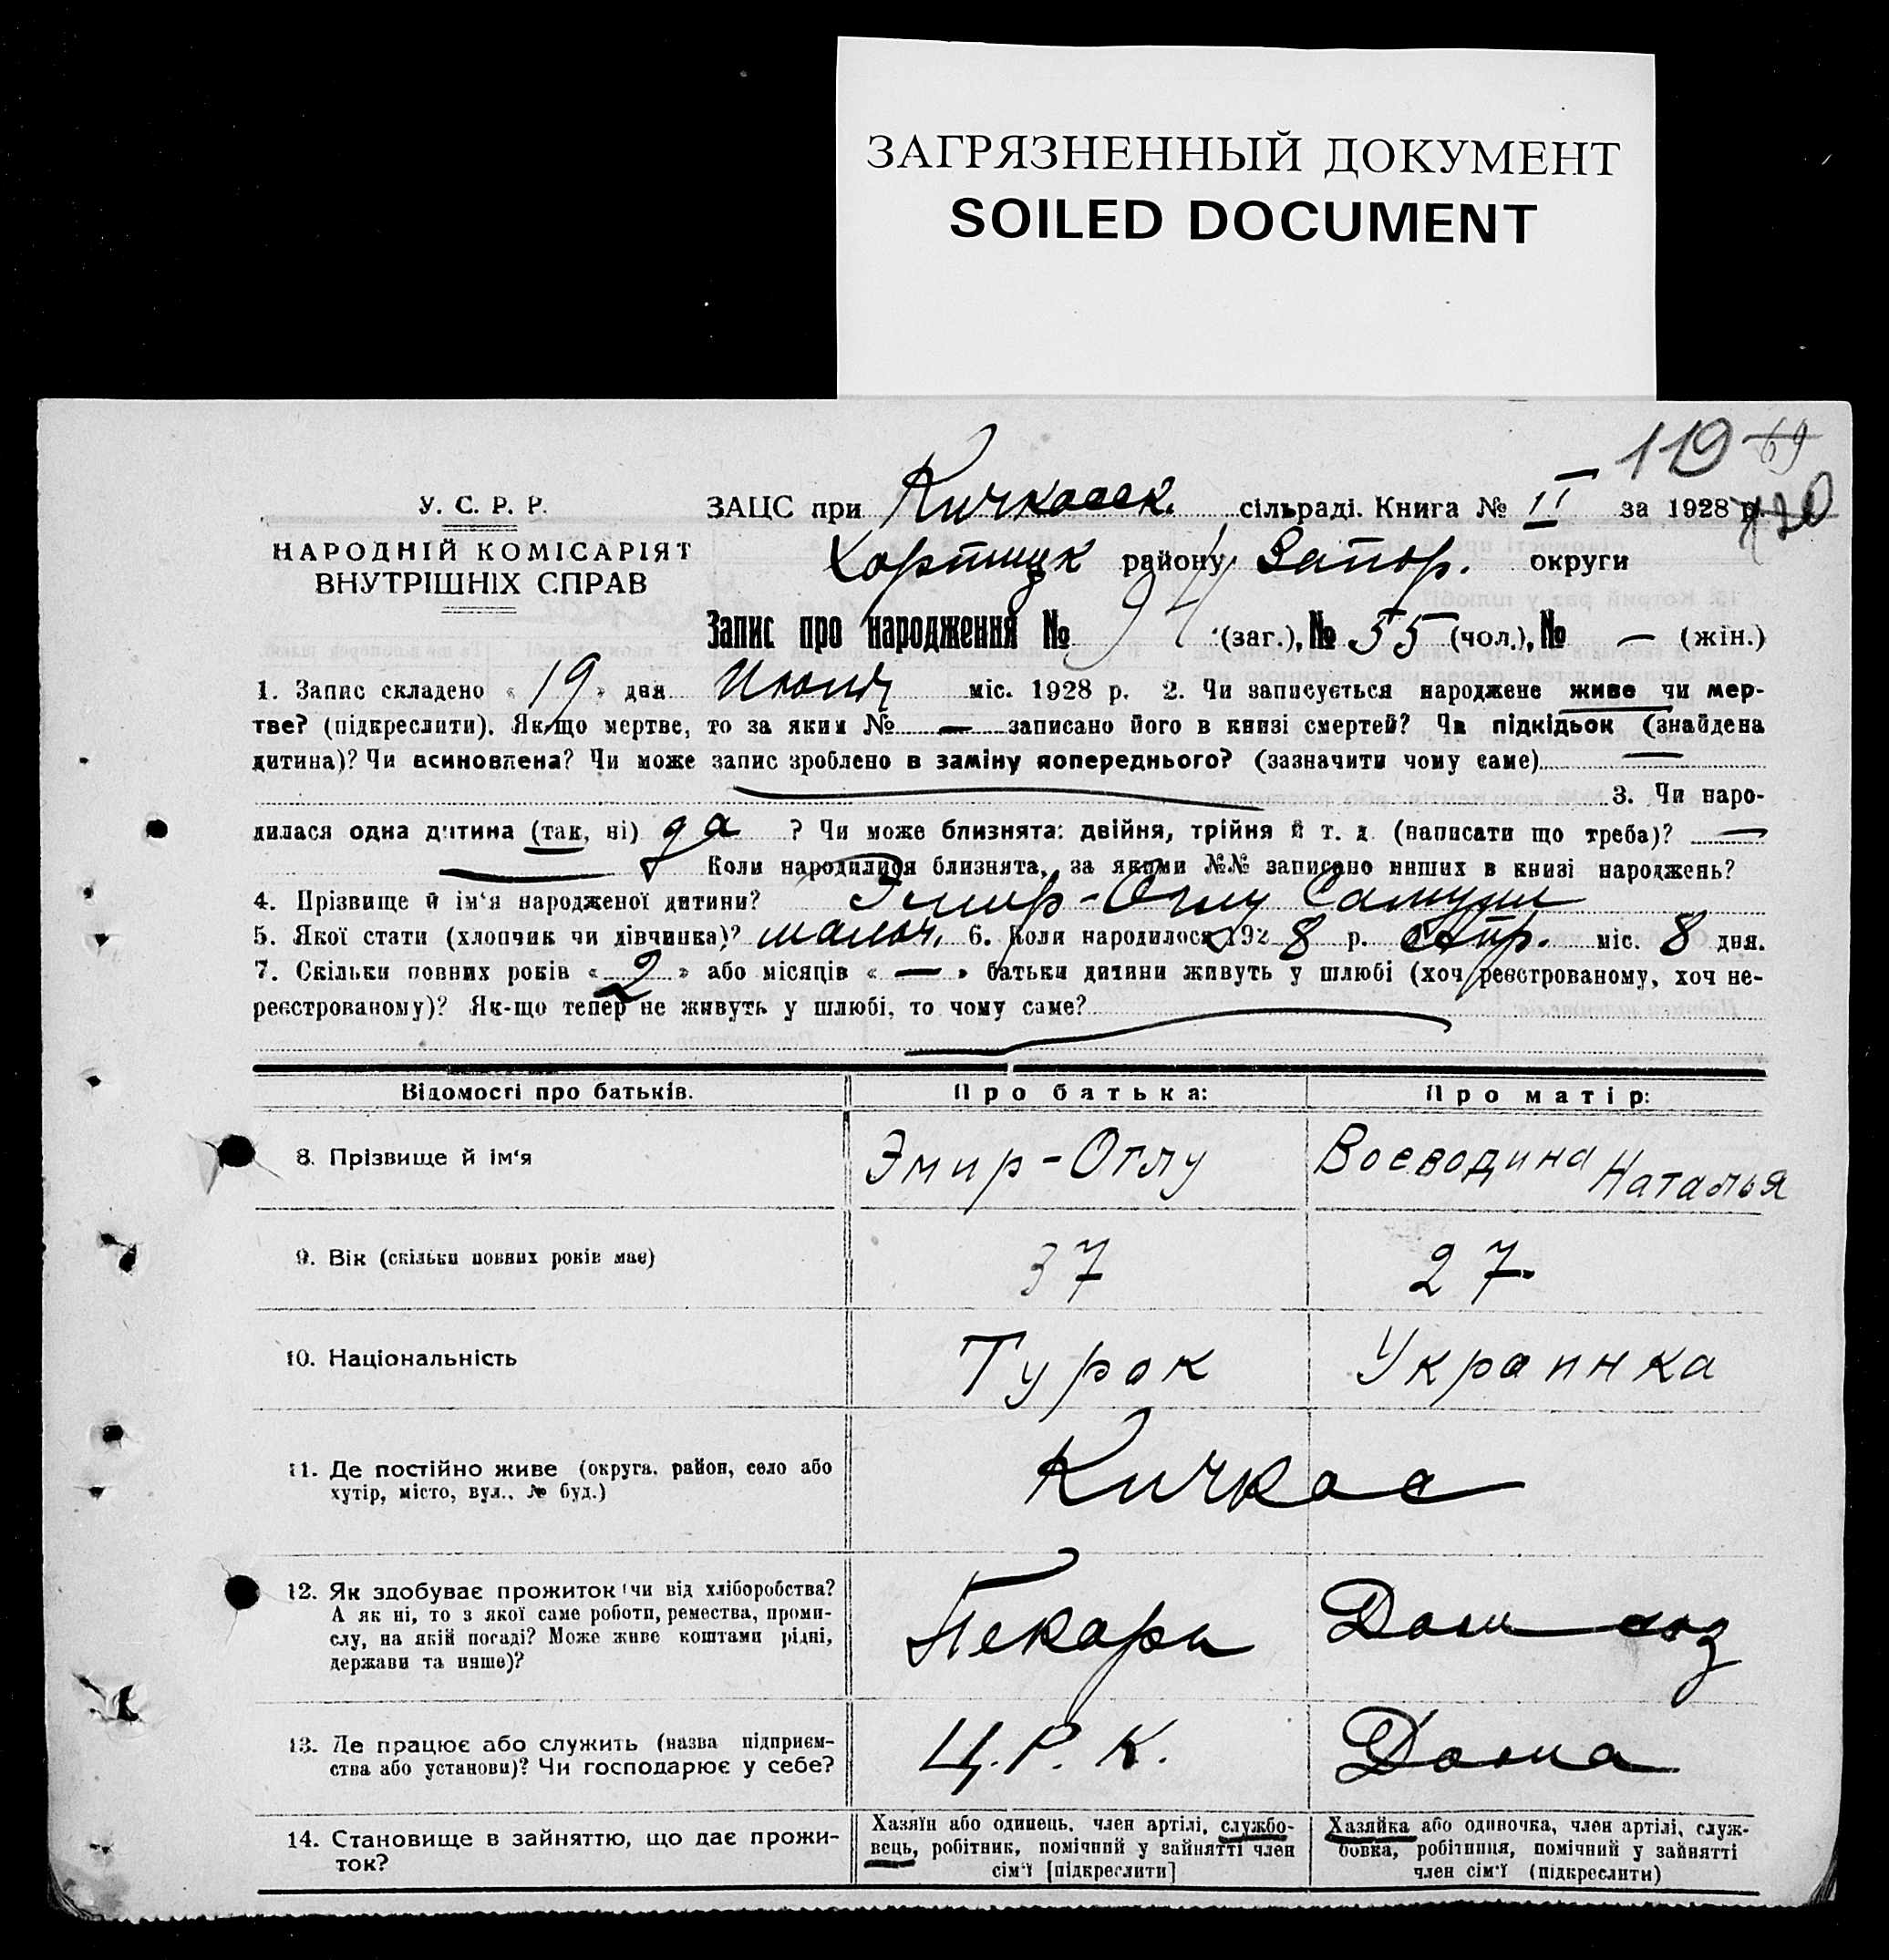 ЗАГРЯЗНЕННЫЙ ДОКУМЕНТ
SOILED DOCUMENT
119 69
120
У. С. Р. Р.
НАРОДНІЙ КОМІСАРІЯТ
ВНУТРІШНІХ СПРАВ
ЗАЦС при Кичкасск. сільраді. Книга № II за 1928 р.
Хортицк району Запор. округи
Запис про народження № 94 (заг.), № 55 (чол.), № — (жін.)
1. Запис складено « 19 » дня Июня міс. 1928 р. 2. Чи записується народжене живе чи мер-
тве? (підкреслити). Як-що мертве, то за яким № — записано його в книзі смертей? Чи підкідьок (знайдена
дитина)? Чи всиновлена? Чи може запис зроблено в заміну попереднього? (зазначити чому саме) —
3. Чи наро-
дилася одна дитина (так, ні) да ? Чи може близнята: двійня, трійня й т. д. (написати що треба)? —
Коли народилися близнята, за якими №№ записано инших в книзі народжень?
4. Прізвище й ім‘я народженої дитини? Эмир-Оглу
5. Якої стати (хлопчик чи дівчинка)? мальч. 6. Коли народилося 1928 р. Апр. міс. 8 дня.
7. Скільки повних років « 2 » або місяців « — » батьки дитини живуть у шлюбі (хоч реєстрованому, хоч не-
реєстрованому)? Як-що тепер не живуть у шлюбі, то чому саме?
Відомості про батьків. Про батька: Про матір:
8. Прізвище й ім‘я Эмир-Оглу Воеводина Наталья
9. Вік (скільки повних років має) 37 27
10. Національність Турок Украинка
11. Де постійно живе (округа, район, село або
хутір, місто, вул., № буд.)
Кичкас
12. Як здобуває прожиток чи від хліборобства?
А як ні, то з якої саме роботи, ремества, проми-
слу, на якій посаді? Може живе коштами рідні,
держави та инше)?
Пекарь Дом хоз
13. Де працює або служить (назва підприєм-
ства або установи)? Чи господарює у себе?
Ц.Р.К. Дома
14. Становище в зайняттю, що дає прожи-
ток?
Хазяїн або одинець, член артілі, службо-
вець, робітник, помічний у зайнятті член
сім‘ї [підкреслити]
Хазяйка або одиночка, член артілі, служ-
бовка, робітниця, помічний у зайнятті
член сім‘ї (підкреслити)